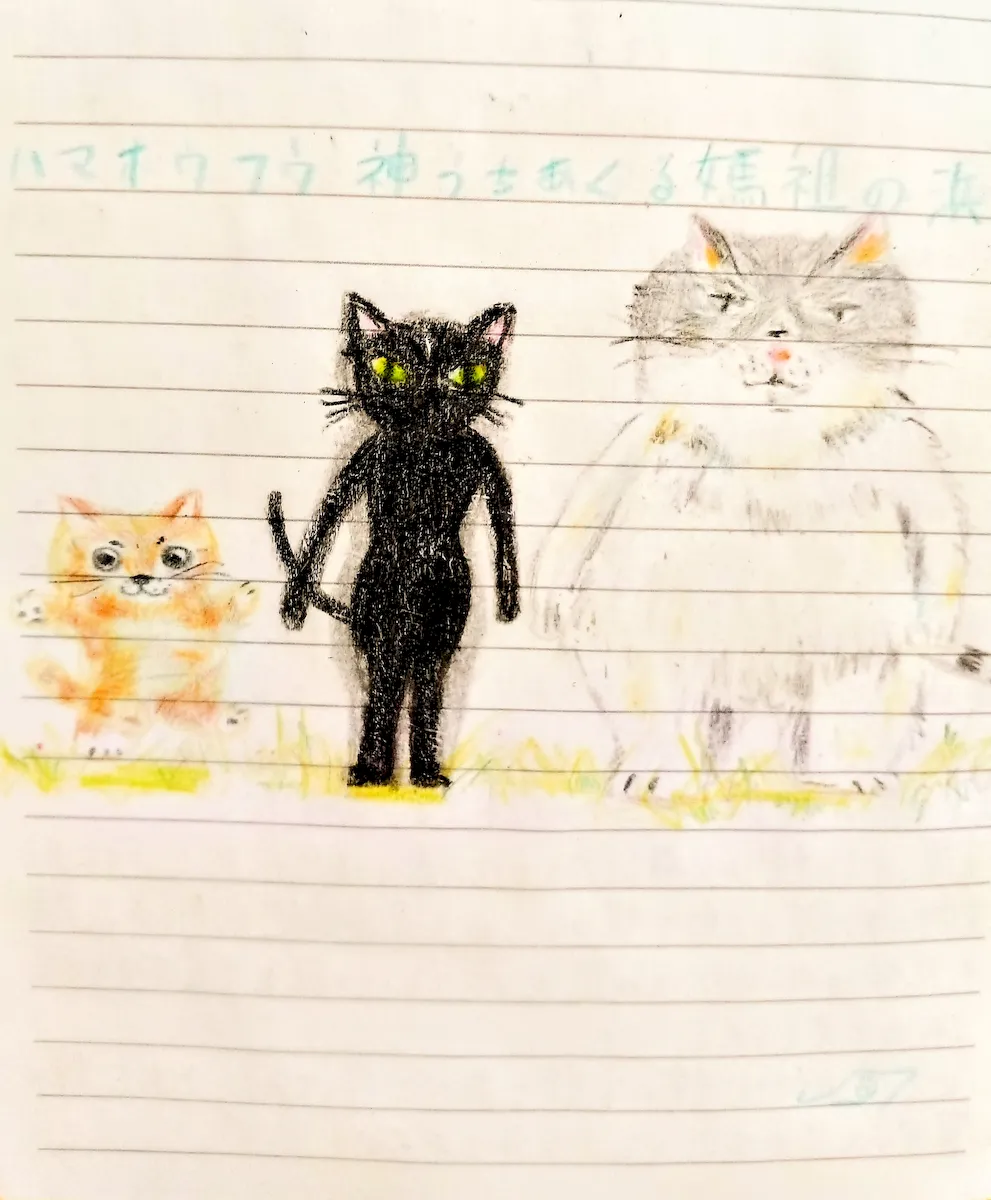 ハマオウフウ 神うちあくる媽祖の浜